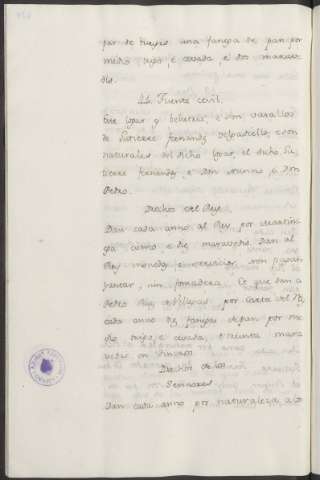 par de bueyes una fanega de pan por
medio trigo, e cevada, e dos marave-
dis.
Fuente cavil.
Este logar es behetria, e son vasallos
de Gutierre Ferrandz Delcastiello, e son
naturales del dicho logar, el dicho Gu-
tierre Ferrandz, e Don Nunno, e Don
Pedro.
Derechos del Rey.
Dan cada anno al Rey por martinie-
ga como e diz maravedis. Dan al
Rey moneda, e servicios, non pagan
yantar, nin fonsadera. Et que dan a
Pedro Ruy por carta del Rey
cada anno diz fanegas de pan por me-
dio trigo, e cevada, e treinta mara-
vedis en dineros.
Derechos de los
Sennores
Dan cada anno por naturaleza a los